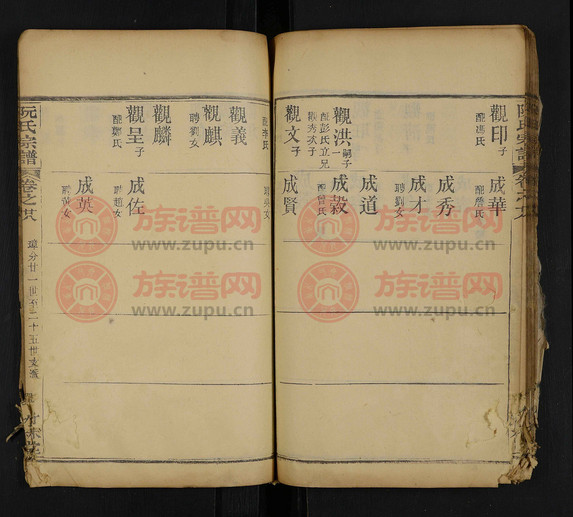 觀印子
配馮氏
成華
配詹氏
成秀
成才
聘劉女
成道
觀洪一嗣子
配彭氏立兄
觀秀次子
成穀
配曾氏
觀文子
成賢
配李氏
觀義
觀麒
聘劉女
觀麟
觀呈子
配鄭氏
成佐
聘趙女
成英
聘黃女
阮氏宗譜
卷之
璋分廿一世至二十五世支派
族谱网
www.zupu.cn
族谱网
www.zupu.cn
族谱网
www.zupu.cn
族谱网
www.zupu.cn